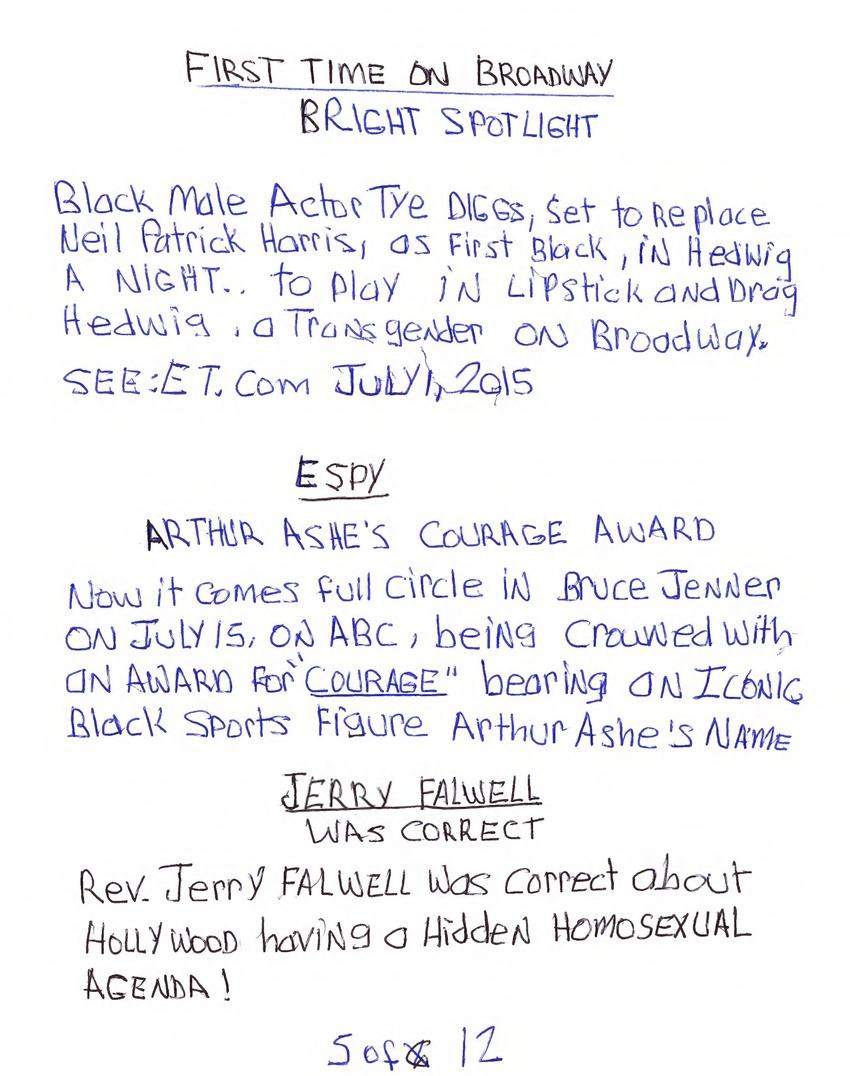 FIRST TIME ON BROADWAY
BRIGHT SPOTLIGHT
Black Male Actor Tye DIGGS, Set to Replace
Neil Patrick Harris, as First Black, iN Hedwig
A NIGHT.. to play iN Lipstick and Drag
Hedwig, a Transgender ON Broadway.
SEE:ET.Com JULY 1, 2015
ESPY
ARTHUR ASHE'S COURAGE AWARD
Now it comes full Circle iN Bruce JENNER
ON JULY 15, ON ABC, being Crouwed with
aN AWARD for "COURAGE" bearing aN ICONIC
Black Sports Figure Arthur Ashe's NAME
JERRY FALWELL
WAS CORRECT
Rev. Jerry FALWELL was correct about
HOLLYWOOD having a Hidden HOMOSEXUAL
AGENDA!
5 of 12